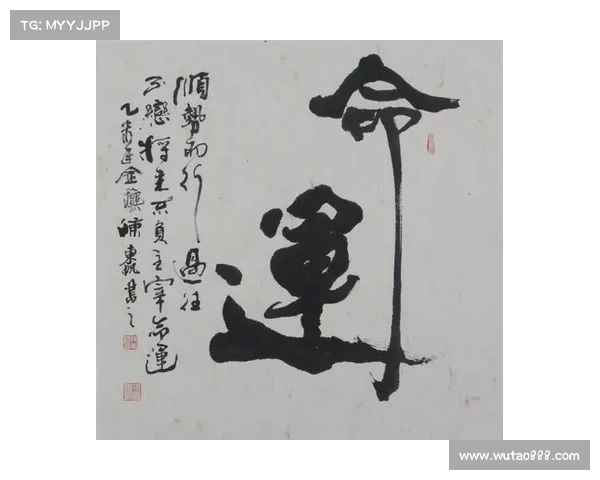 TG: MYYJJPP
命運
順勢而行過往
不戀將來不負主宰命運
乙未
書之
www.wutao888.com